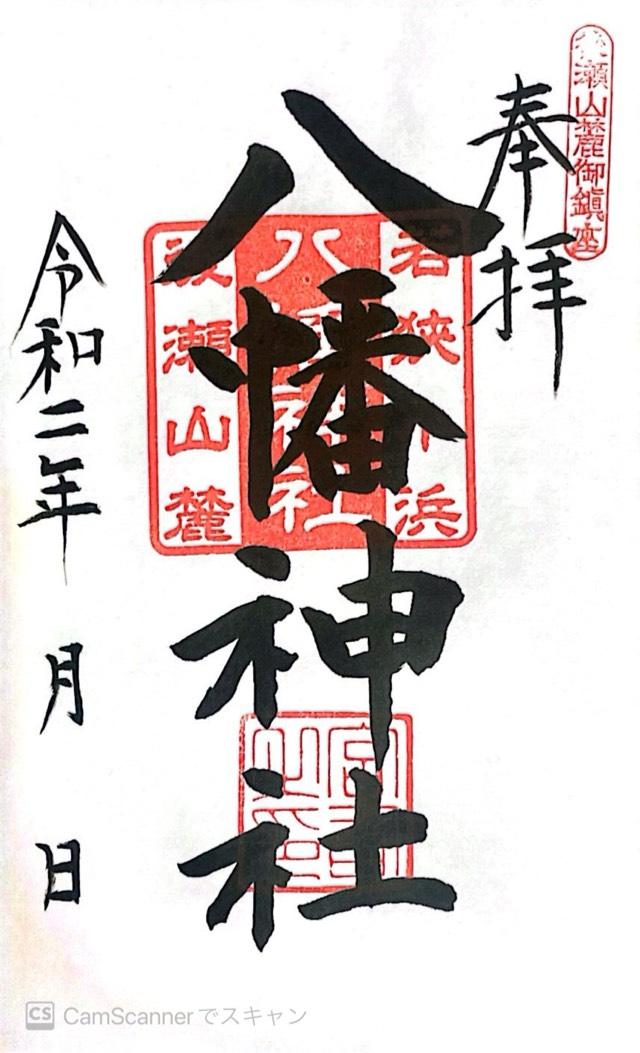 瀬山麓御鎮座
奉拝
八幡神社
若狭小浜
八幡神社
後瀬山麓
令和二年 月 日
CS CamScannerでスキャン